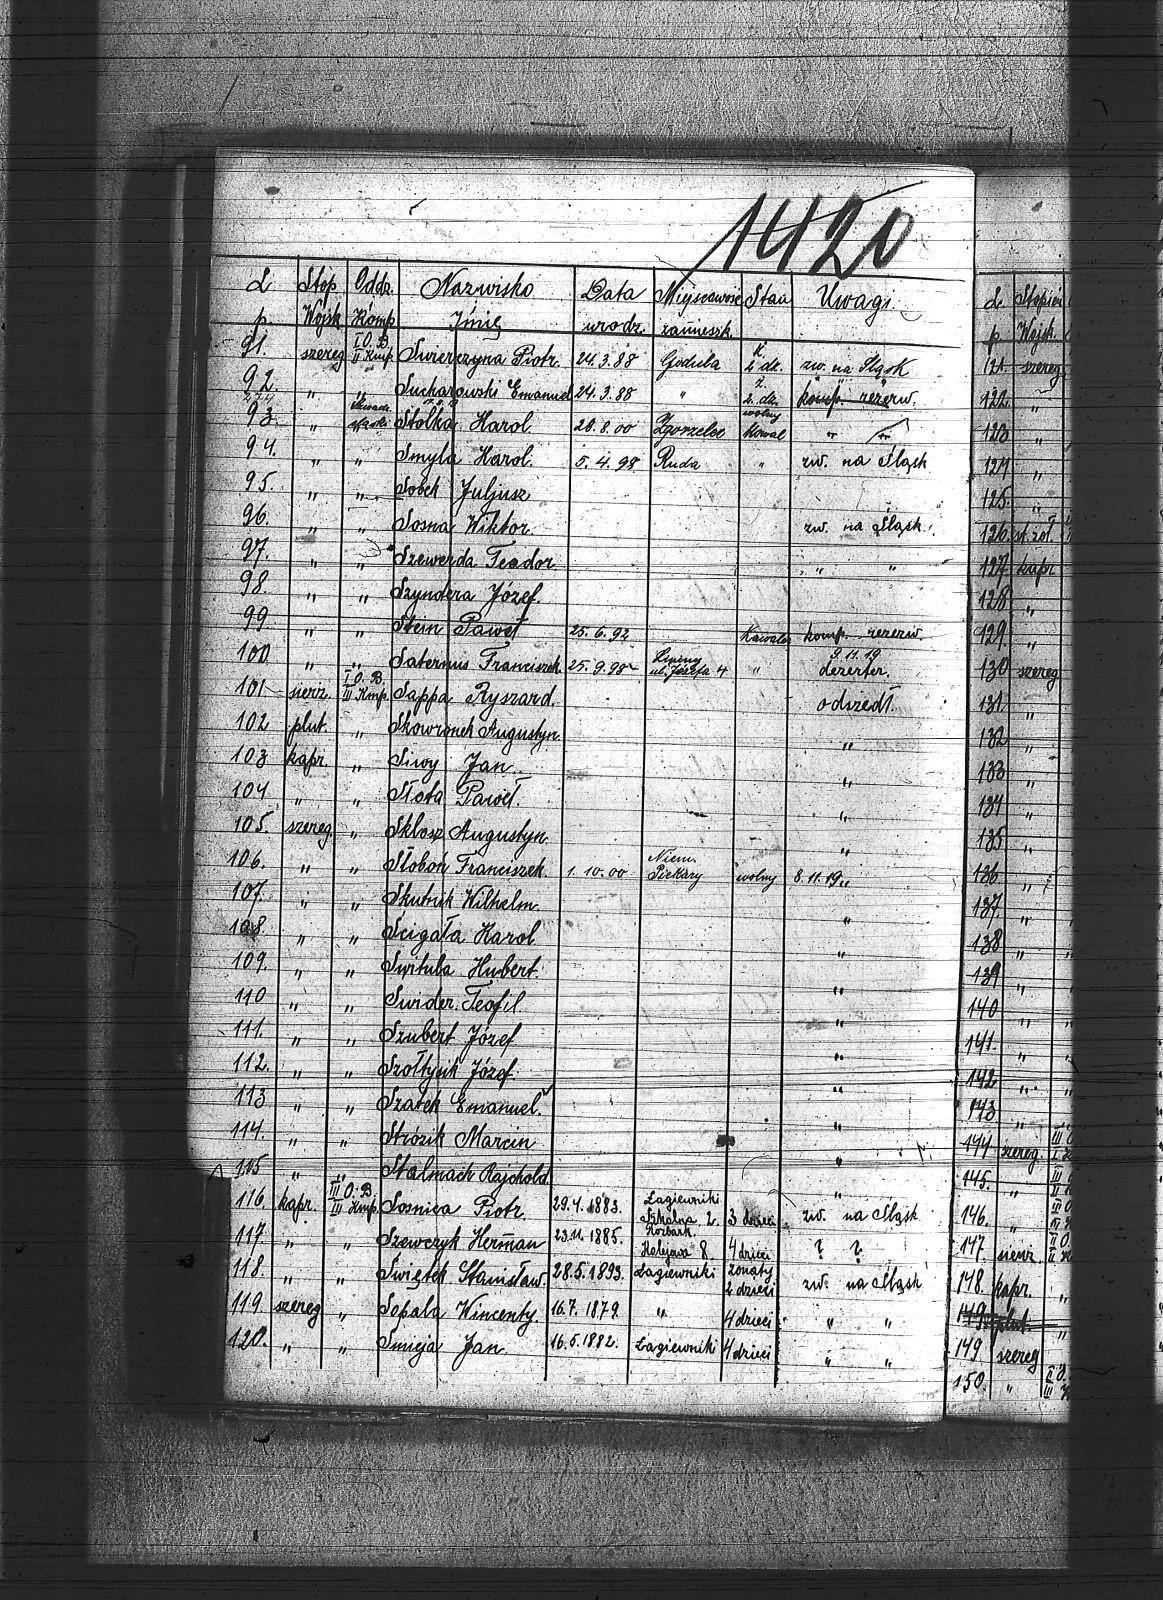 1420
L p. Stop. Wojsk. Oddz. Komp. Nazwisko Imię Data urodz. Miejscowość zamieszk. Stan Uwagi
91. szereg I O.B. II Kmp. Swierczyna Piotr. 24.3.88 Godula ż. 2 dz. zw. na Śląsk
92. " " Sucharowski Emanuel 24.3.88 " ż. 2 dz. komp. rezerw.
93. " Stolka Karol. 28.8.00 Zgorzelec wolny Kowal "
94. " " Smyla Karol. 5.4.98 Ruda " zw. na Śląsk
95. " " Sobek Juljusz
96. " " Sosna Wiktor. zw. na Śląsk.
97. " " Szewerda Teodor " "
98. " " Szyndera Józef.
99 " " Stein Paweł 25.6.92 Kawaler komp. rezerw.
100. " " Saternus Franciszek 25.9.98 Lipiny ul. Józefa 4 " 9.11.19 dezerter.
101 sierż I O.B. III Kmp. Sappa Ryszard. odszedł.
102 plut. " Skowronek Augustyn. "
103 kapr. " Siwy Jan "
104 " " Słota Paweł. "
105. szereg. " Sklosz Augustyn. "
106. " " Słoboń Franciszek. 1.10.00 Niem. Piekary wolny 8.11.19 "
107. " " Skutnik Wilhelm. "
108. " " Ścigała Karol "
109. " " Switula Hubert. "
110 " " Swider. Teofil. "
111. " " Szubert Józef "
112. " " Szołtysik Józef. "
113 " " Szatek Emanuel. "
114. " " Stróżik Marcin "
115 " " Stalmach Rajchold. "
116 kapr. III O.B. III Kmp. Sosnica Piotr. 29.4.1883. Łagiewniki Szkalna 2. 3 dzieci zw. na Śląsk
117 " " Szewczyk Herman 23.11.1885. Rozbark Kolejowa 8. 4 dzieci ? ?
118 " " Świątek Stanisław. 28.5.1893. Łagiewniki żonaty 2 dzieci zw. na Śląsk
119 szereg " Sopala Wincenty. 16.7.1879. " 4 dzieci " "
120. " " Smieja Jan 16.5.1882. Łagiewniki 4 dzieci " "
L p Stopień Wojsk.
121. szereg
122. "
123 "
124 "
125. "
126. st. żoł.
127 kapr
128 "
129. "
130 szereg
131 "
132 "
133 "
134 "
135 "
136 "
137. "
138 "
139 "
140 "
141. "
142 "
143 "
144 szereg.
145. "
146. "
147. sierż.
148. kapr.
149. plut.
149 szereg
150. "